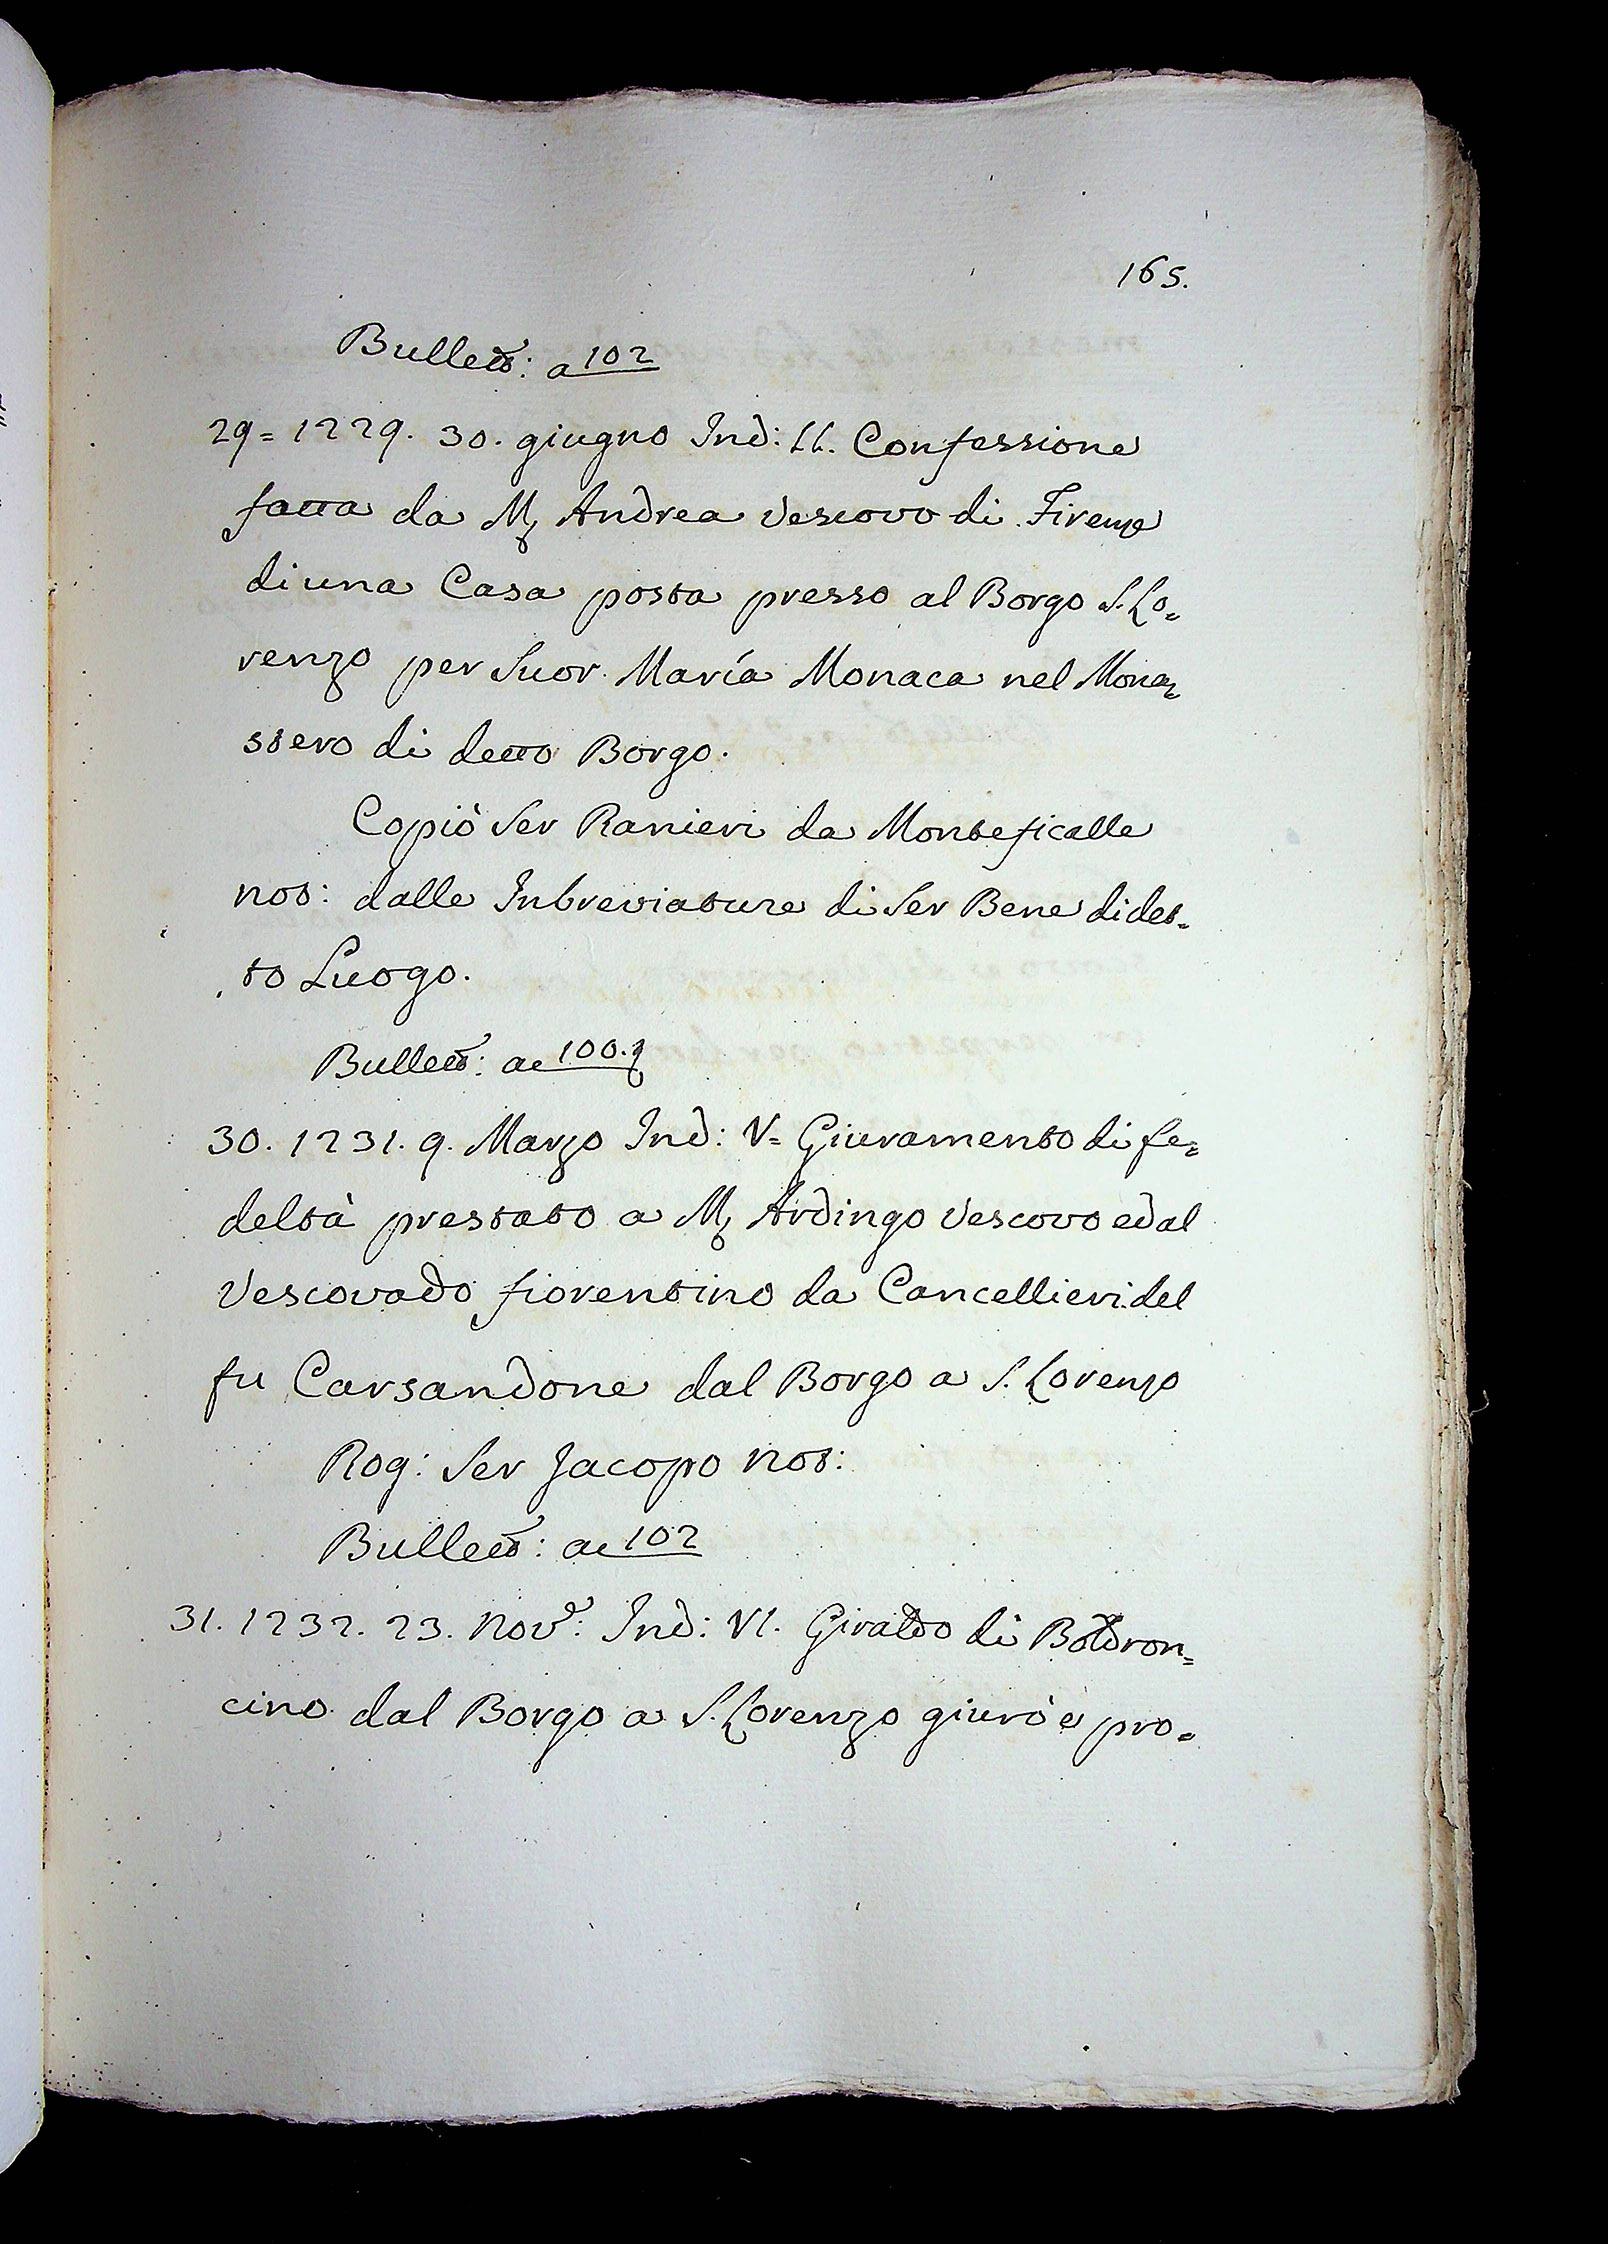 165.
Bullett: a 102
29= 1229. 30. giugno Ind: II. Confessione
fatta da M. Andrea Vescovo di Firenze
di una Casa posta presso al Borgo S. Lo=
renzo per Suor. María Monaca nel Mona=
stero di detto Borgo.
Copiò Ser Ranieri da Monteficalle
not: dalle Inbreviature di Ser Bene di det=
to Luogo.
Bullett: ac 100.
30. 1231. 9. Marzo Ind: V= Giuramento di fe=
deltà prestato a M. Ardingo Vescovo ed al
Vescovado fiorentino da Cancellieri del
fu Carsandone dal Borgo a S. Lorenzo
Rog: Ser Jacopo not:
Bullett: ac 102
31. 1232. 23. Nov.e: Ind: VI. Giraldo di Boldron=
cino dal Borgo a S. Lorenzo giurò e pro=